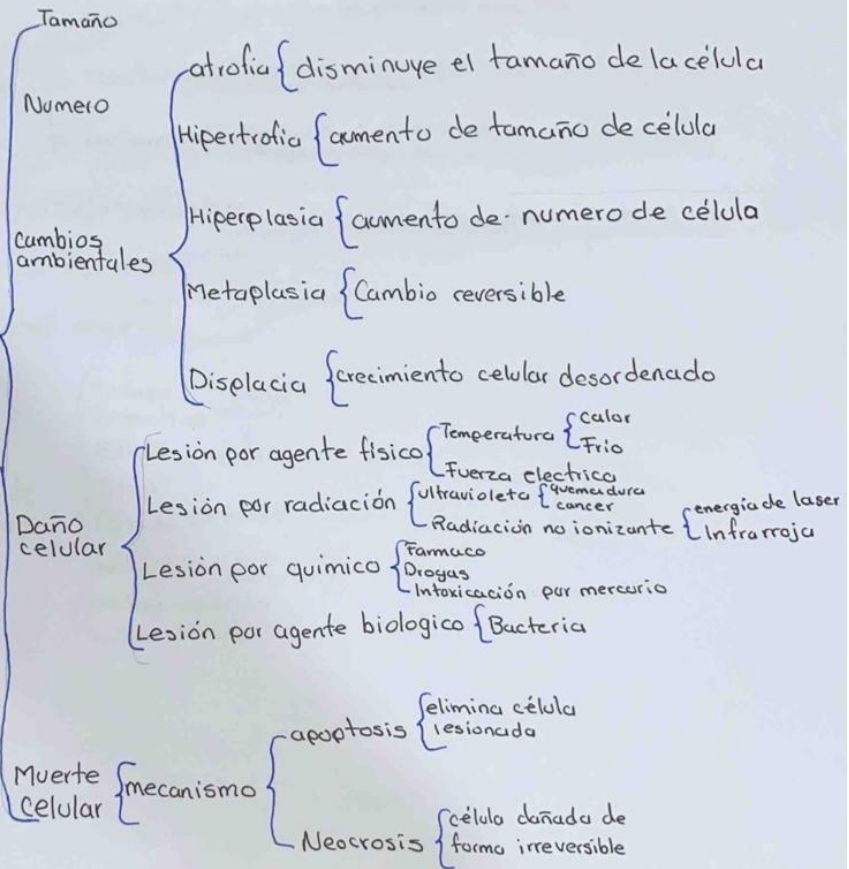 Tamaño
Numero
Cambios
ambientales
atrofia { disminuye el tamaño de la célula
Hipertrofia { aumento de tamaño de célula
Hiperplasia { aumento de numero de célula
Metaplasia { Cambio reversible
Displacia { crecimiento celular desordenado
Daño
celular
Lesión por agente físico { Temperatura { calor
Frio
Fuerza electrica
Lesión por radiación { ultravioleta { quemadura
cancer
Radiación no ionizante { energía de laser
Infrarroja
Lesión por quimico { Farmaco
Drogas
Intoxicación por mercurio
Lesión por agente biologico { Bacteria
Muerte
Celular { mecanismo
apoptosis { elimina célula
lesionada
Neocrosis { célula dañada de
forma irreversible